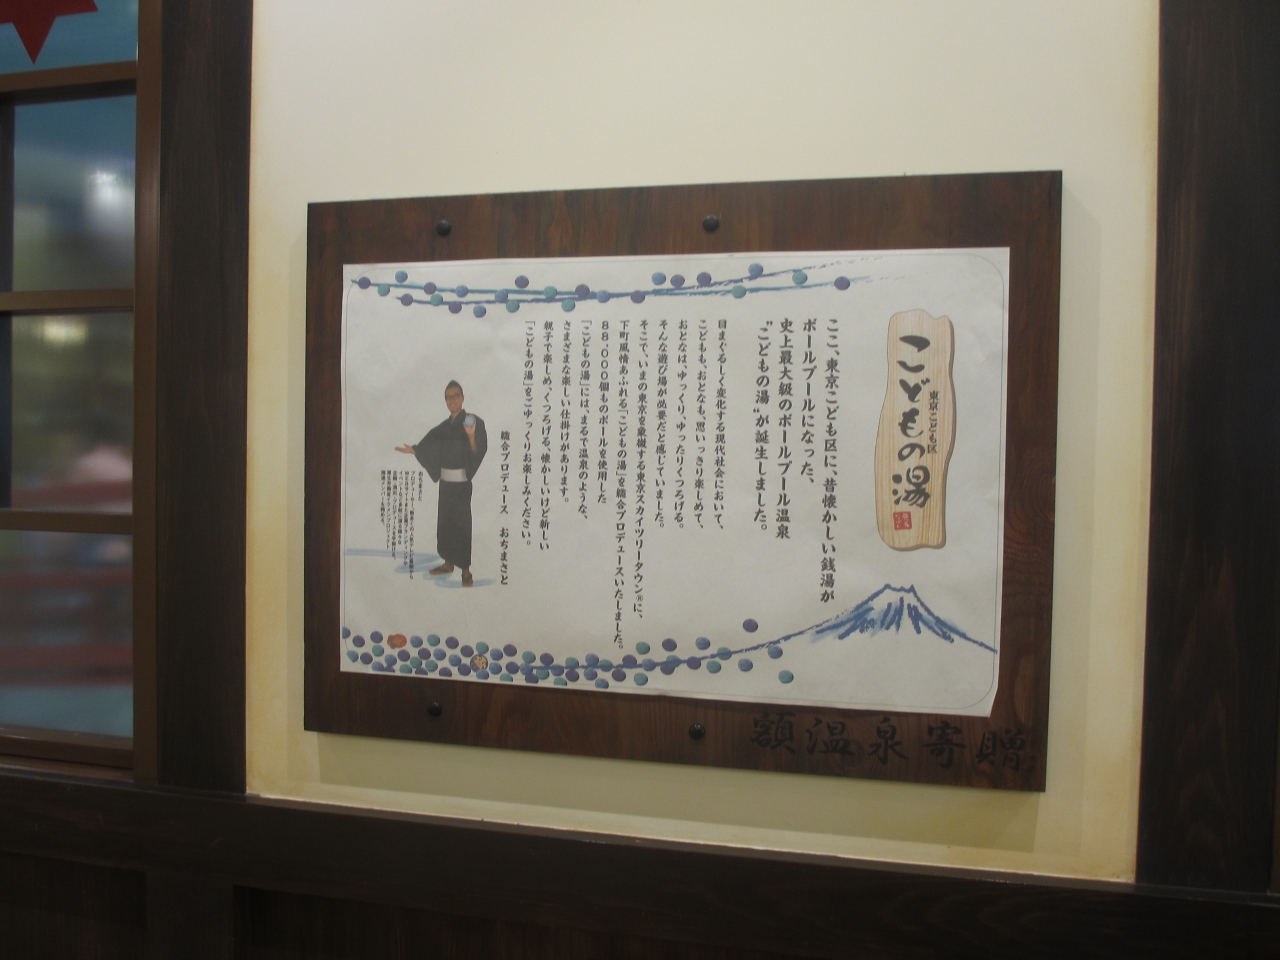 東京こども区
こどもの湯
ここ、東京こども区に、昔懐かしい銭湯が
ボールプールになった、
史上最大級のボールプール温泉
“こどもの湯”が誕生しました。
目まぐるしく変化する現代社会において、
こどもも、おとなも、思いっきり楽しめて、
おとなは、ゆっくり、ゆったりくつろげる。
そんな遊び場が必要だと感じていました。
そこで、いまの東京を象徴する東京スカイツリータウン®に、
下町風情あふれる「こどもの湯」を総合プロデュースいたしました。
88,000個ものボールを使用した
「こどもの湯」には、まるで温泉のような、
さまざまな楽しい仕掛けがあります。
親子で楽しめ、くつろげる、懐かしいけど新しい
「こどもの湯」をごゆっくりお楽しみください。
総合プロデュース おちまさと
おちまさと
額温泉寄贈